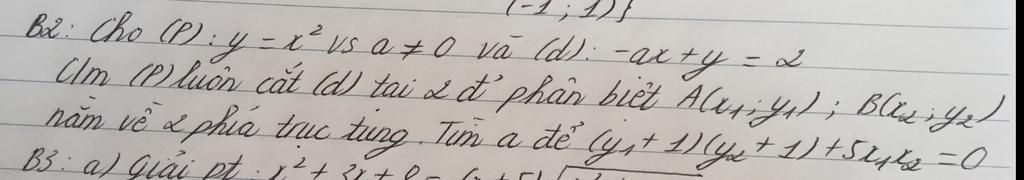 (-1 ; 1)}
B2: Cho (P): y = x² vs a ≠ 0 và (d): -ax + y = 2
Cm (P) luôn cắt (d) tai 2 đ' phân biêt A(x₁; y₁) ; B(x₂; y₂)
nằm về 2 phía truc tung. Tìm a để (y₁ + 1)(y₂ + 1) + 5x₁x₂ = 0
B3: a) Giải pt: x² + 3x +